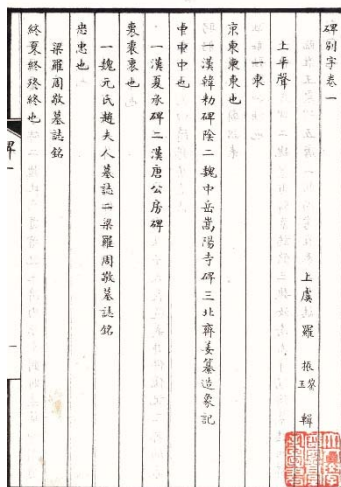 碑別字卷一
上虞羅振鋆玉輯
上平聲
一東
東東東東也
一漢韓勑碑陰二魏中岳嵩陽寺碑三北齊姜纂造象記
中也
一漢夏承碑二漢唐公房碑
衷也
一魏元氏趙夫人墓誌二梁羅周敬墓誌銘
忠也
梁羅周敬墓誌銘
終也